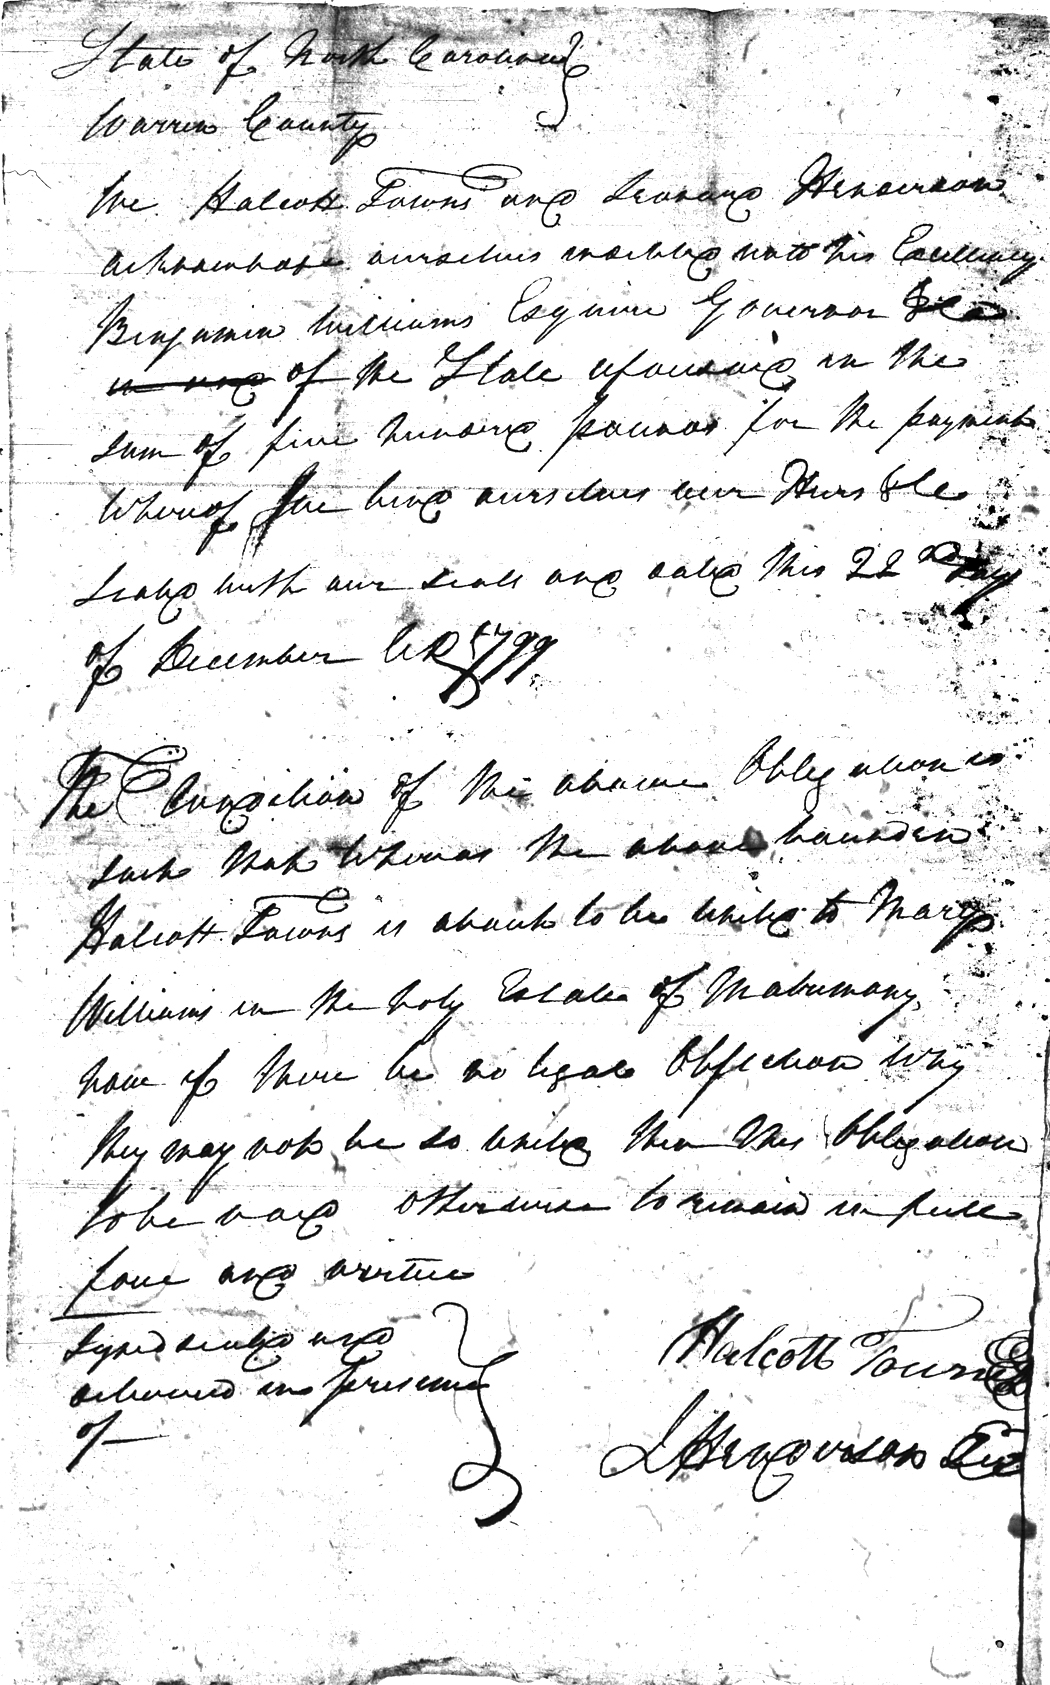 State of North Carolina }
Warren County
We Halcott Towns and Leonard Henderson
acknowledge ourselves indebted unto his Excellency
Benjamin Williams Esquire Governor &c
of the State aforesaid in the
sum of five hundred pounds for the payment
whereof we bind ourselves our Heirs &c
Sealed with our seals and dated this 22nd Day
of December AD 1799
The Condition of the above Obligation is
such that Whereas the above bounden
Halcott Towns is about to be united to Mary
Williams in the holy Estate of Matrimony,
now if there be no legal Objection why
they may not be so united then this Obligation
to be void otherwise to remain in full
force and virtue
Signed sealed and
delivered in presence
of —
Halcott Towns
L Henderson